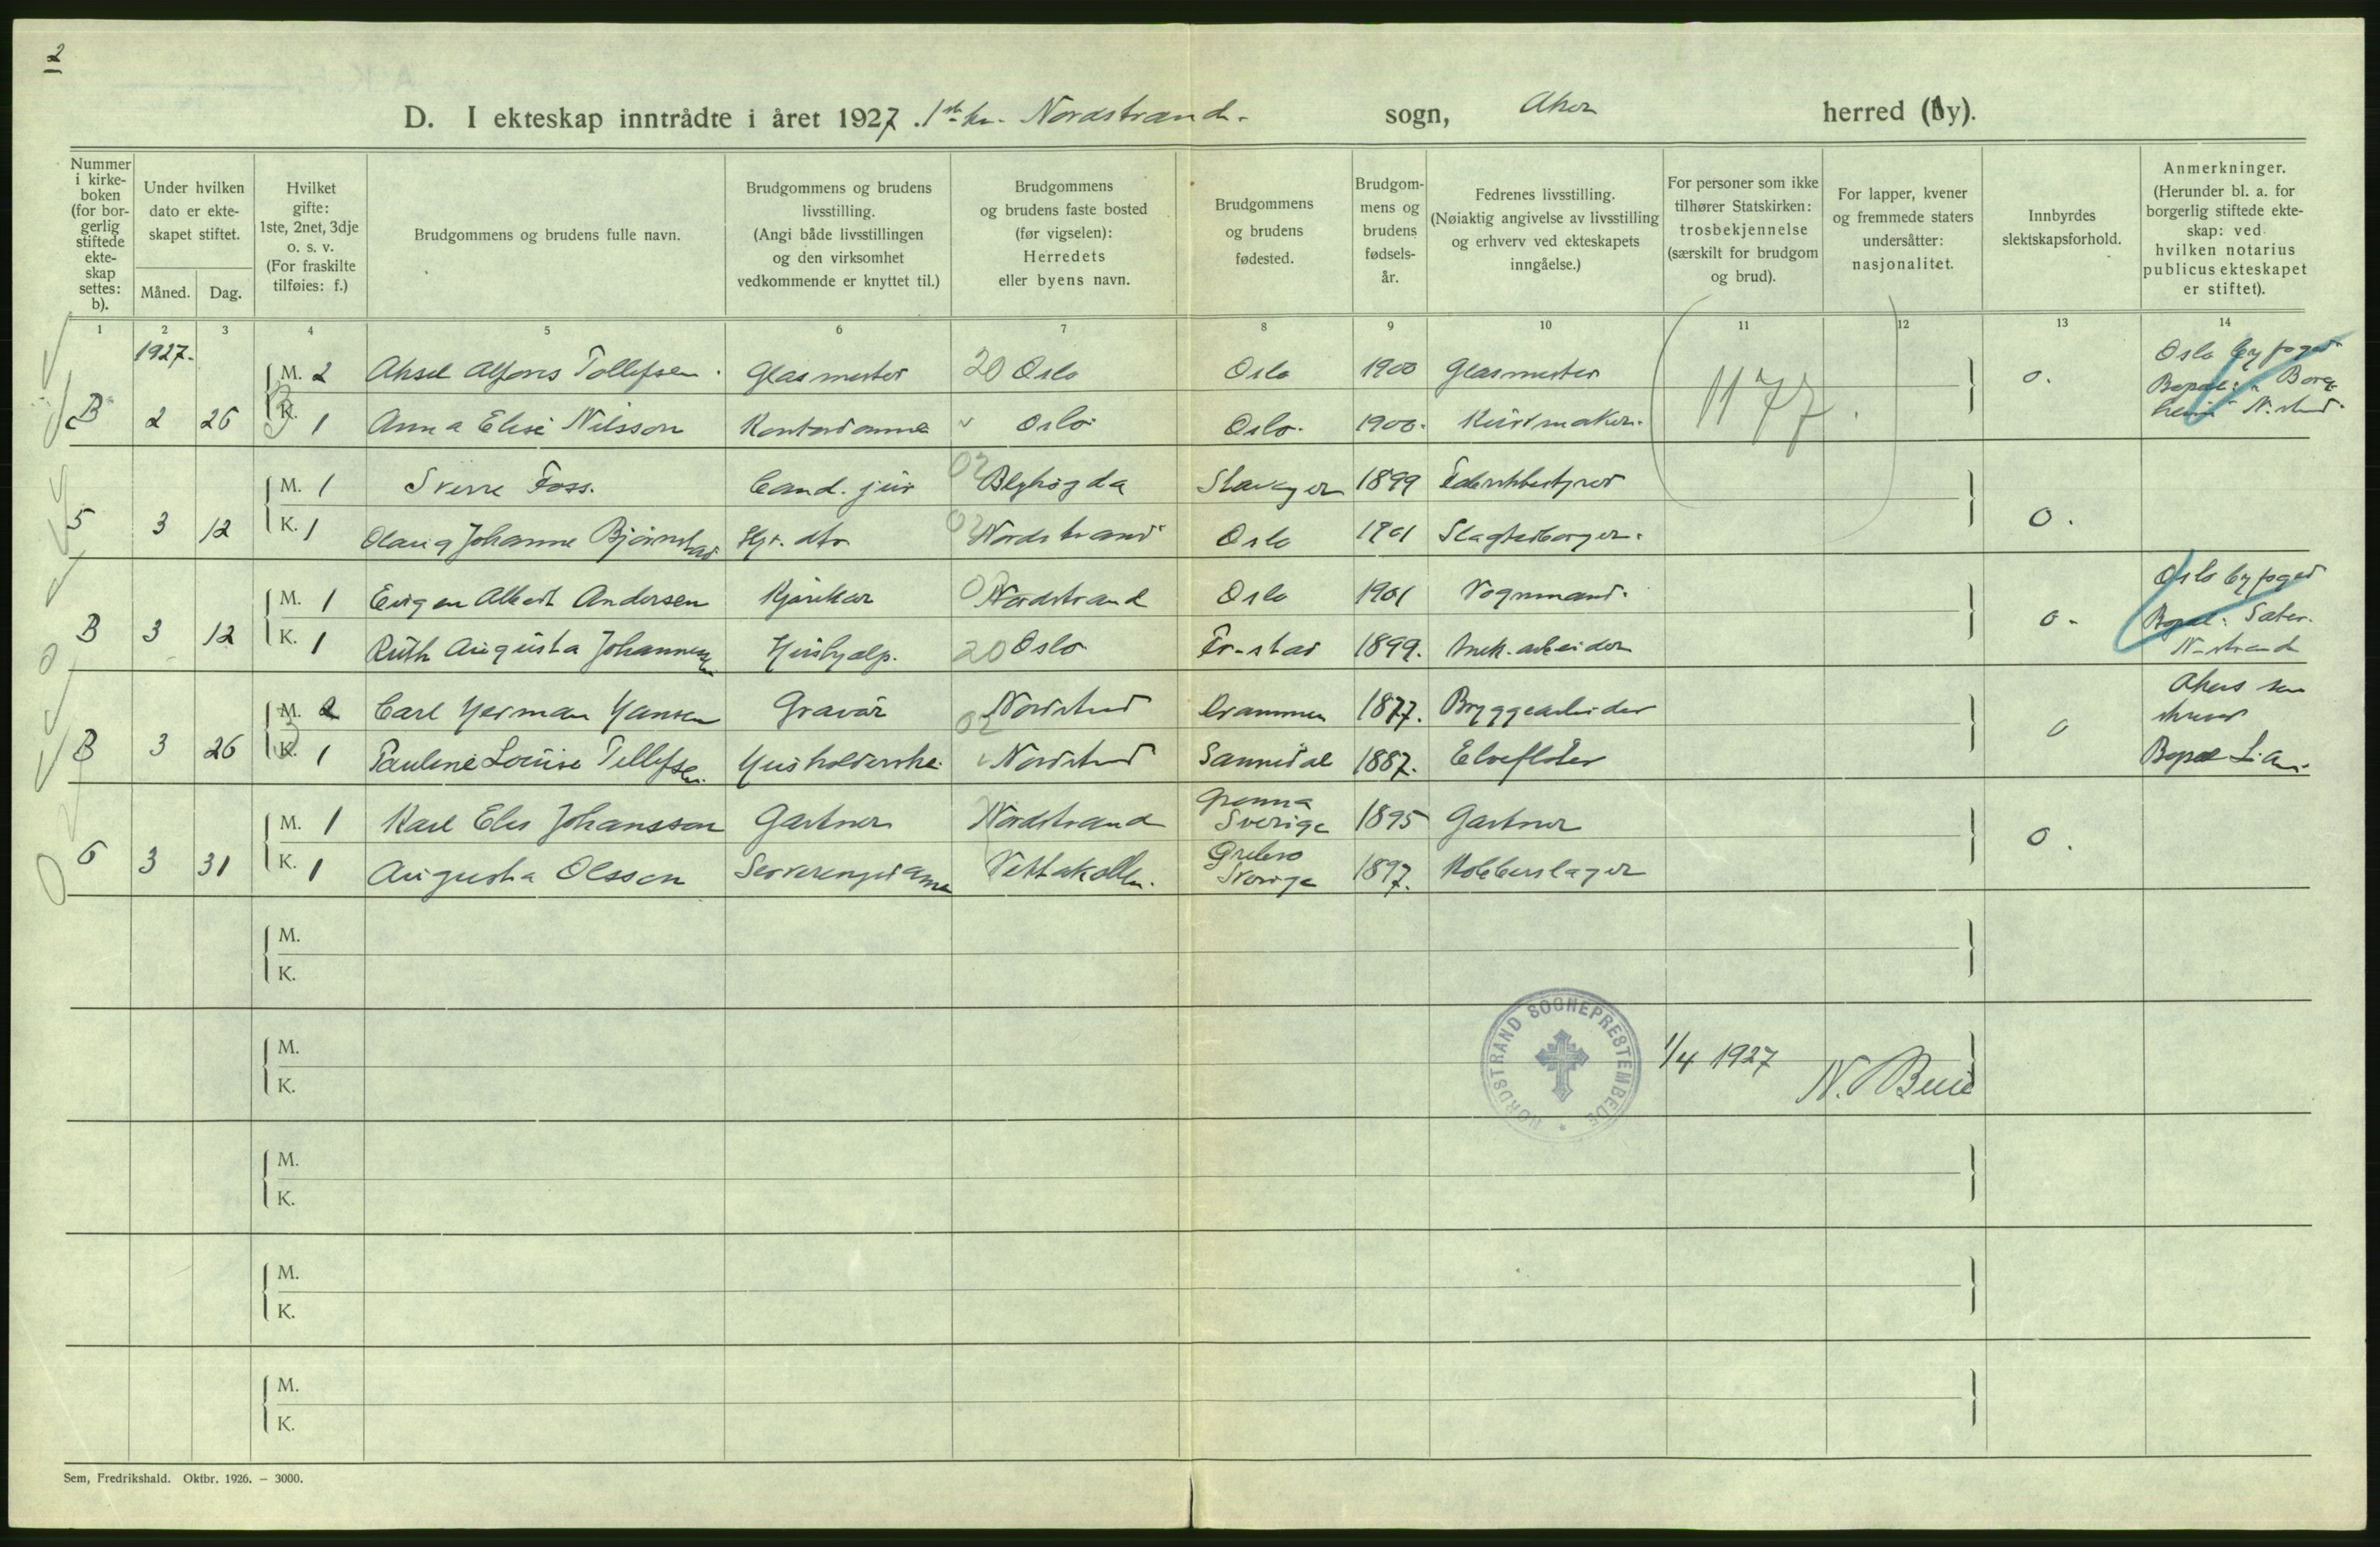 2
D. I ekteskap inntrådte i året 1927. 1ste kv. Nordstrand. sogn, Aker herred (by).
Nummer i kirke-boken (for bor-gerlig stiftede ekte-skap settes: b).
Under hvilken dato er ekte-skapet stiftet.
Måned. Dag.
Hvilket gifte: 1ste, 2net, 3dje o. s. v. (For fraskilte tilføies: f.)
Brudgommens og brudens fulle navn.
Brudgommens og brudens livsstilling. (Angi både livsstillingen og den virksomhet vedkommende er knyttet til.)
Brudgommens og brudens faste bosted (før vigselen): Herredets eller byens navn.
Brudgommens og brudens fødested.
Brudgom-mens og brudens fødsels-år.
Fedrenes livsstilling. (Nøiaktig angivelse av livsstilling og erhverv ved ekteskapets inngåelse.)
For personer som ikke tilhører Statskirken: trosbekjennelse (særskilt for brudgom og brud).
For lapper, kvener og fremmede staters undersåtter: nasjonalitet.
Innbyrdes slektskapsforhold.
Anmerkninger. (Herunder bl. a. for borgerlig stiftede ekte-skap: ved hvilken notarius publicus ekteskapet er stiftet).
1 2 3 4 5 6 7 8 9 10 11 12 13 14
1927.
M. 2 Aksel Alfons Tollefsen. Glasmester 20 Oslo Oslo 1900 Glasmester 0. Oslo byfoged
B 2 26 K. 1 Anna Elise Nilsson Kontordame Oslo Oslo. 1900. Kurvmaker. 1177
M. 1 Sverre Foss. Cand. jur 02 Blyhøgda Stavanger 1899 Fabrikbestyrer
5 3 12 K. 1 Olaug Johanne Bjørnstad Hj. dtr 02 Nordstrand Oslo 1901 Slagterborger. 0.
M. 1 Eugen Albert Andersen Kjørekar 02 Nordstrand Oslo 1901 Vognmand. Oslo byfoged
B 3 12 K. 1 Ruth Augusta Johannessen Hushjælp. 20 Oslo Fr-stad 1899. Mek. arbeider 0. Bopæl: Sæter. N-strand
M. 2 Carl Herman Hansen Gravør 02 Nordstrd Drammen 1877. Bryggearbeider Akers sorenskriver
B 3 26 K. 1 Pauline Louise Tellefsen. Husholderske. Nordstrd Sannidal 1887. Elvefløter 0 Bopæl Lian.
M. 1 Karl Elis Johansson Gartner Nordstrand Grenna Sverige 1895 Gartner
6 3 31 K. 1 Augusta Olsson Serveringsdame Vettakollen. Ørebro Sverige 1897. Kobberslager 0.
M.
K.
M.
K.
NORDSTRAND SOGNEPRESTEMBEDE
1/4 1927
M.
K.
M.
K.
M.
K.
Sem, Fredrikshald. Oktbr. 1926. — 3000.